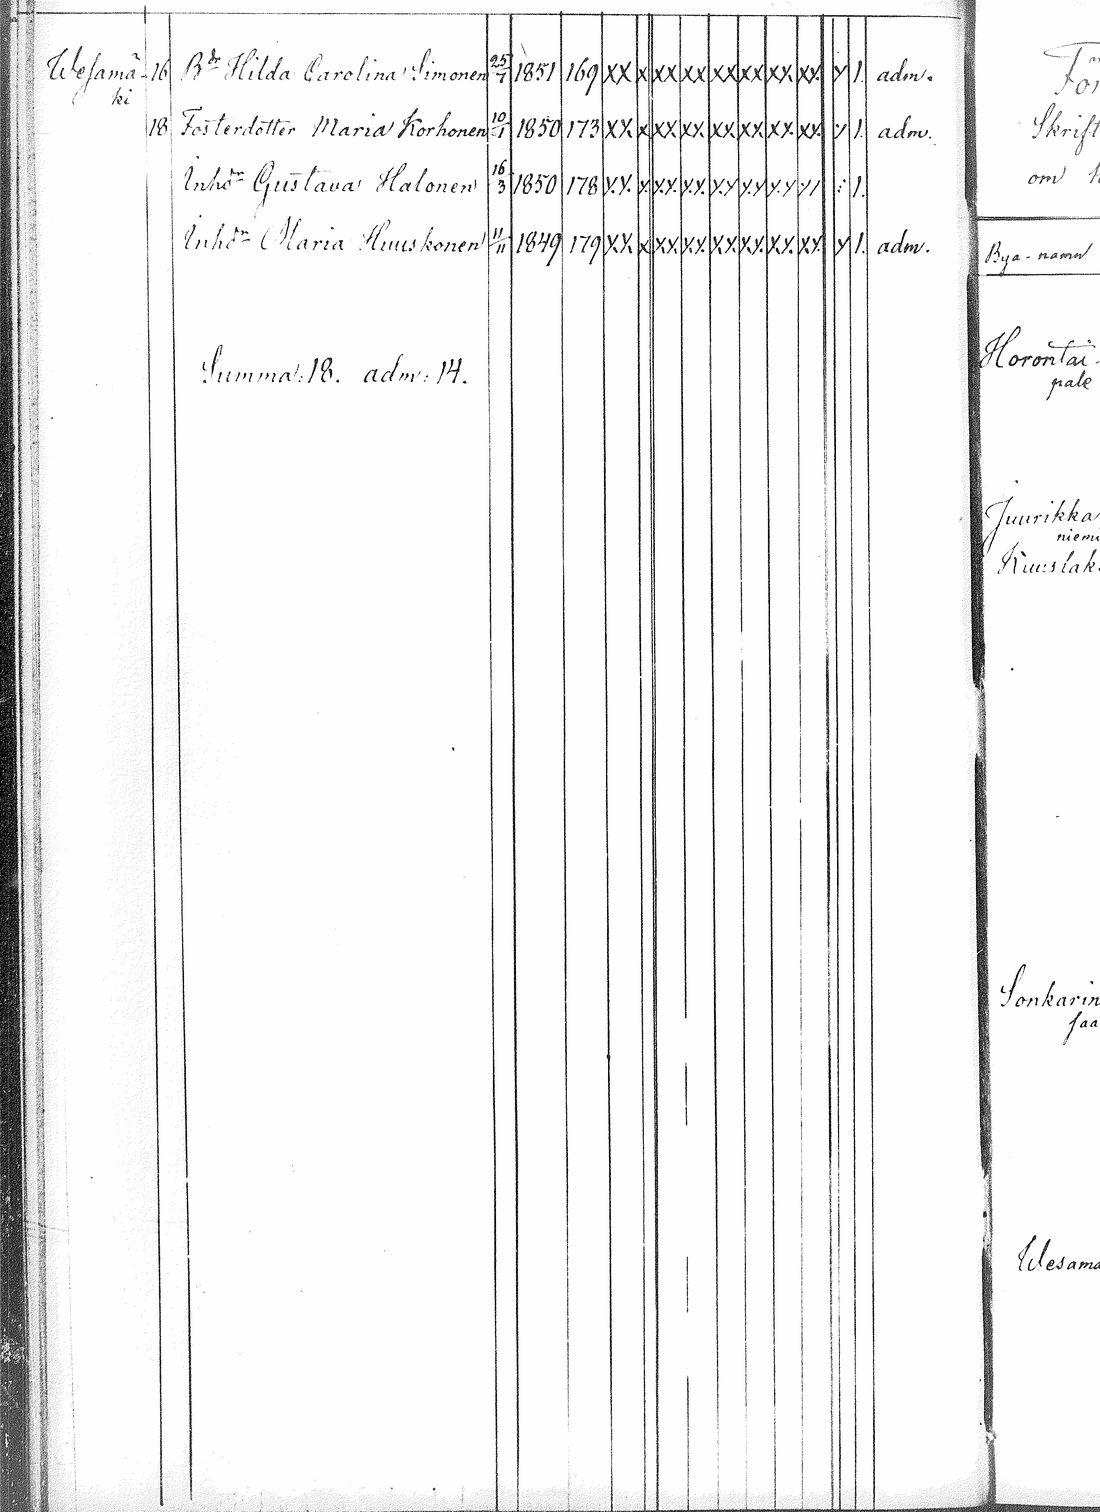 Wesamä- 16 Bdr Hilda Carolina Simonen 25/7 1851 169 XX x XX XX XX XX XX XX y 1. adm.
ki
18 Fosterdotter Maria Korhonen 10/1 1850 173 XX x XX XX XX XX XX XX y 1. adm.
Inhdr Gustava Halonen 16/3 1850 178 1.
Inhdr Maria Huuskonen 11/11 1849 179 XX x XX XX XX XX XX XX y 1. adm.
Summa: 18. adm: 14.
Skrift
om
Bya-namn
Horontai-
pale
Juurikka
niemi
Kuuslak
Sonkarin
saa
Wesamä